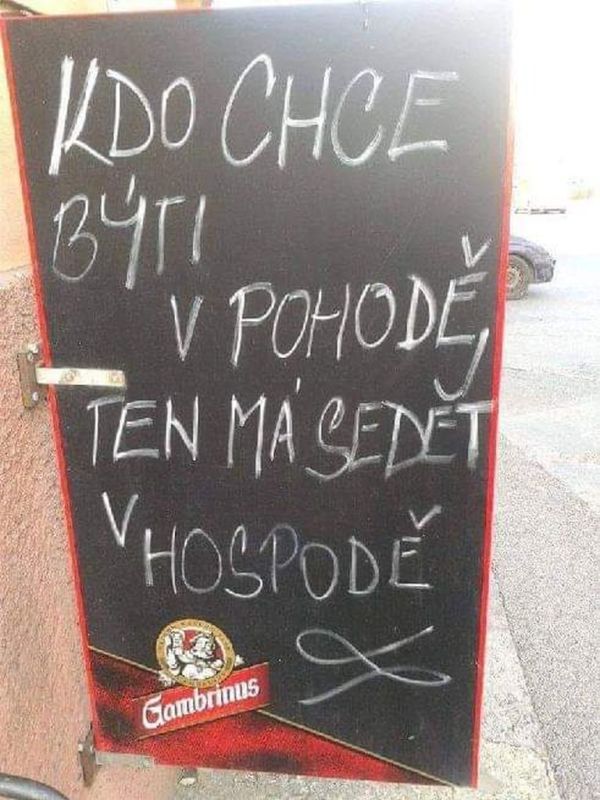 KDO CHCE
BÝTI
V POHODĚ,
TEN MÁ SEDĚT
V HOSPODĚ
Gambrinus